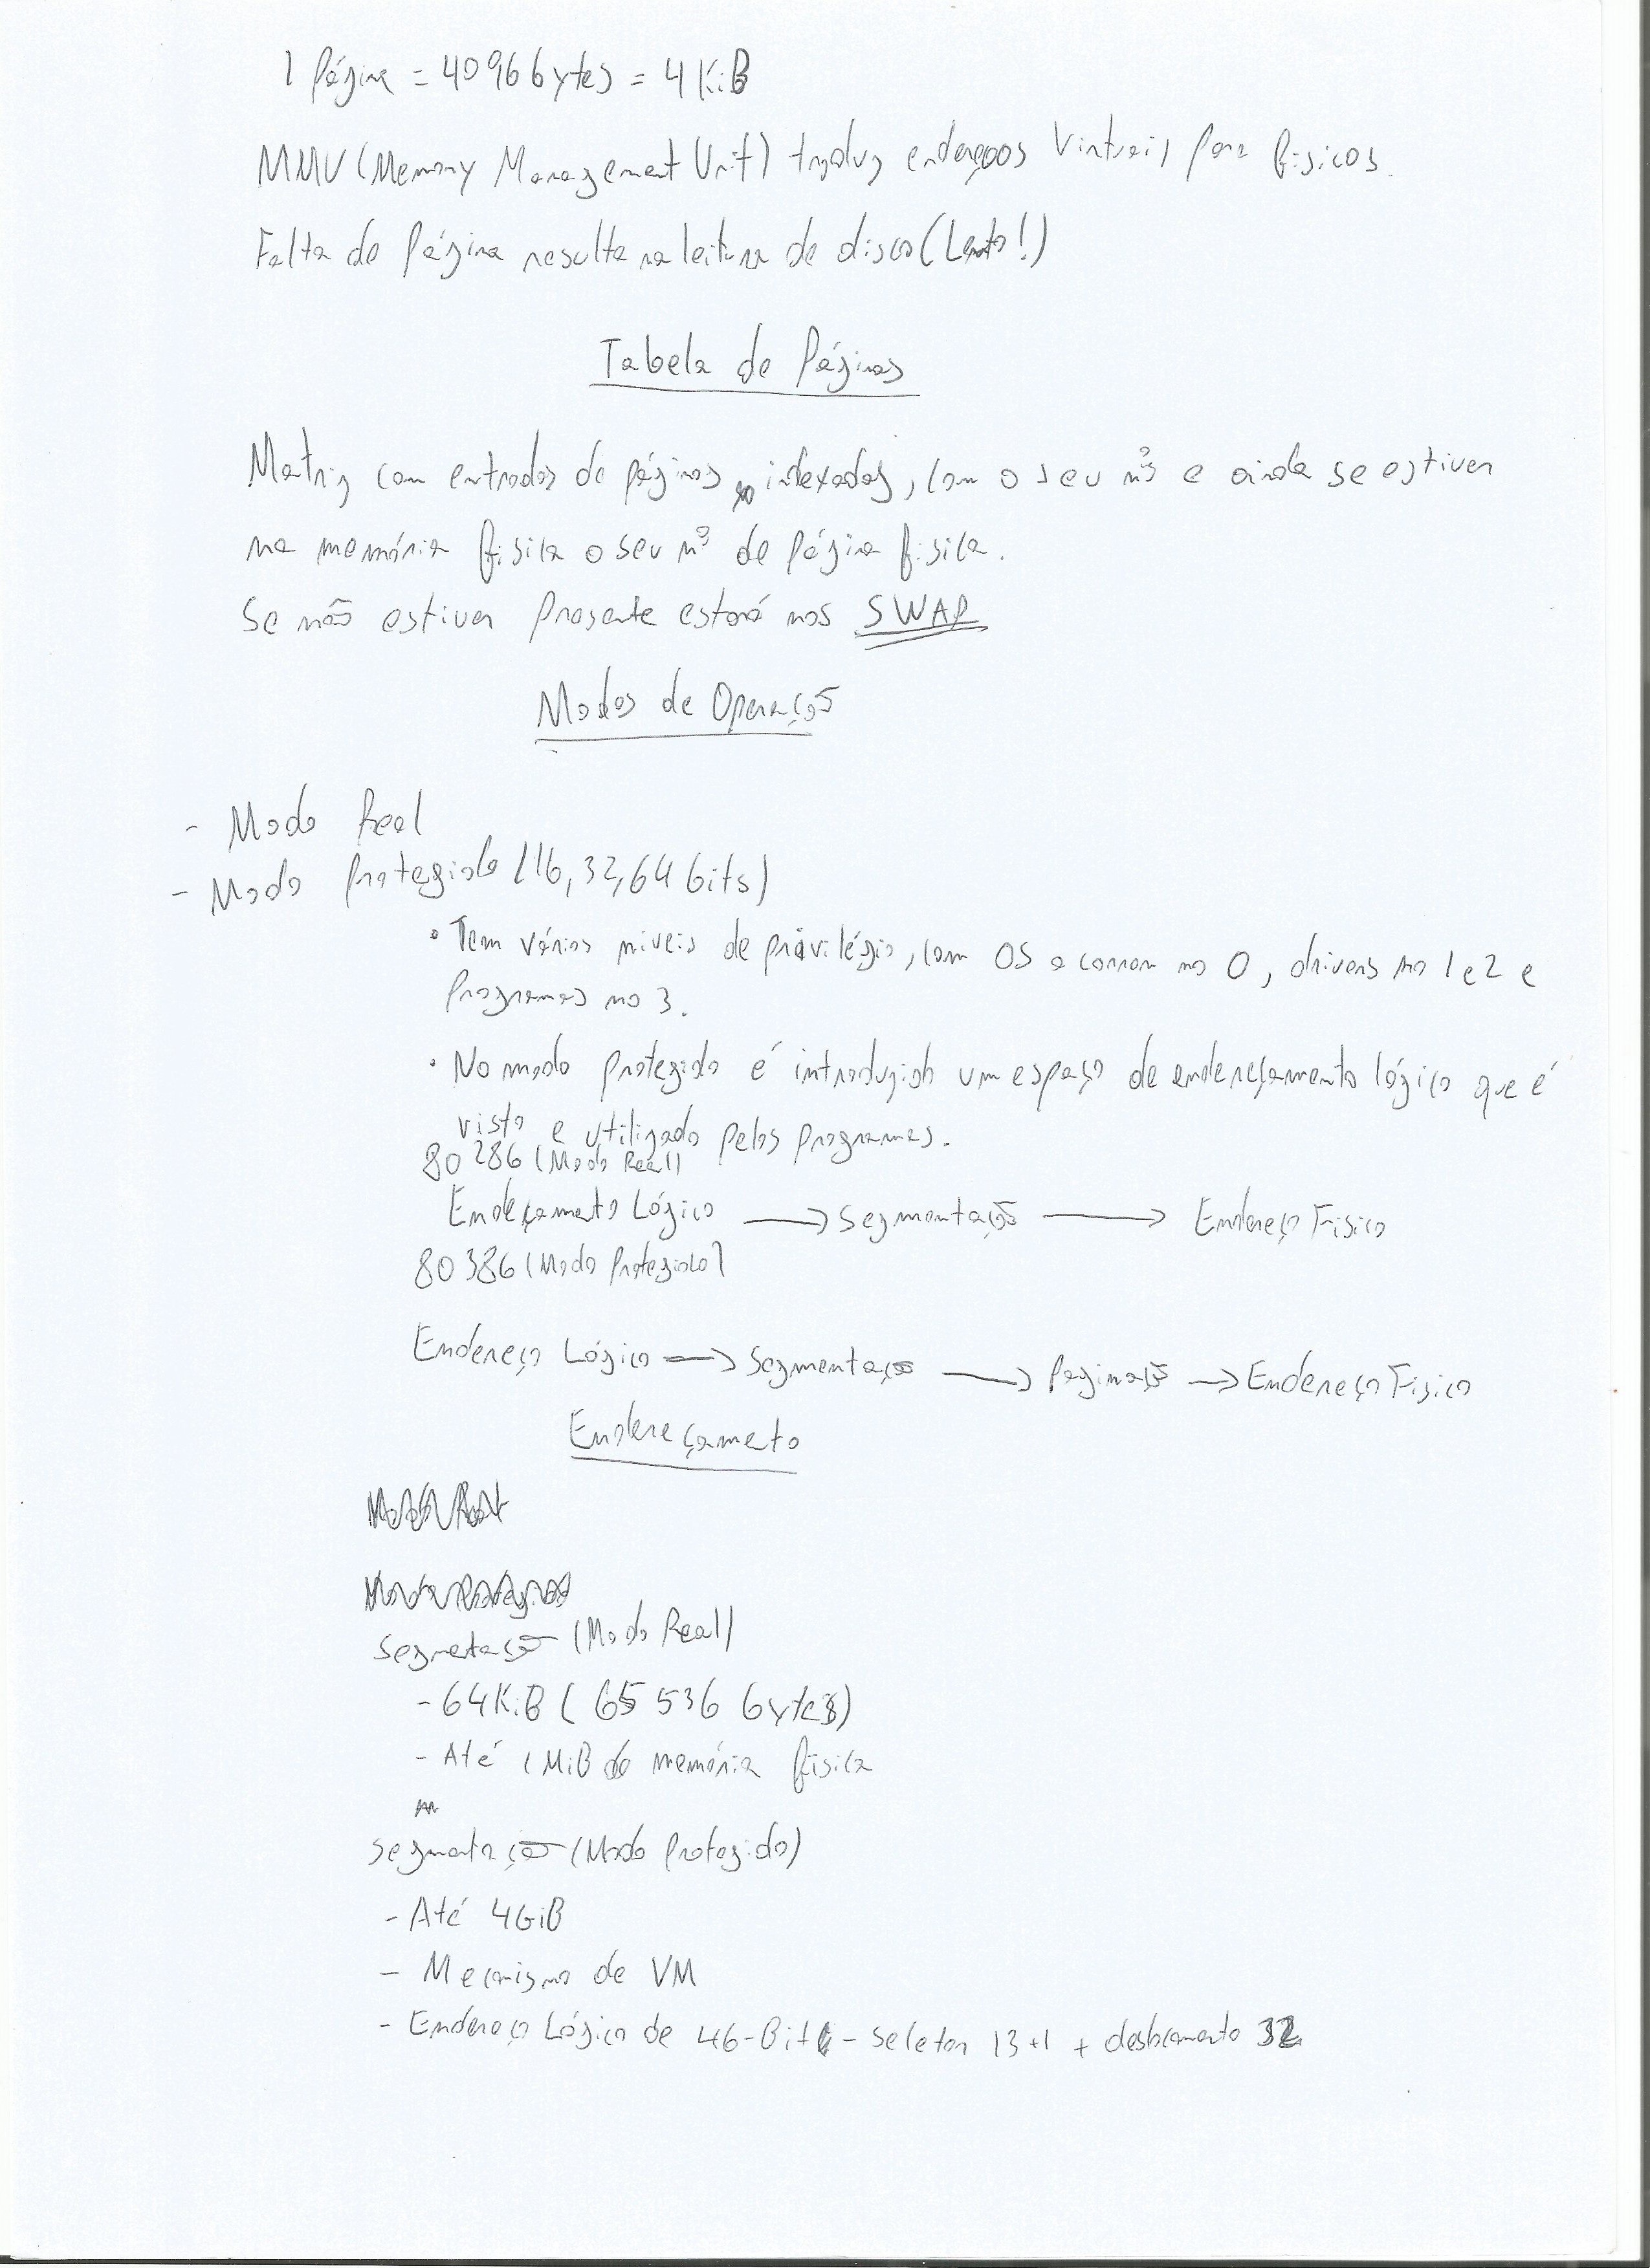 1 Página = 4096 bytes = 4 KiB
MMU (Memory Management Unit) traduz endereços Virtuais para físicos.
Falta de Página resulta na leitura de disco (Lento!)
Tabela de Páginas
Matriz com entradas de páginas indexadas, com o seu nº e ainda se estiver
na memória física o seu nº de página física.
Se não estiver Presente estará nos SWAP
Modos de Operação
- Modo Real
- Modo Protegido (16, 32, 64 bits)
• Tem vários níveis de privilégio, com OS a correr no 0, drivers no 1 e 2 e
Programas no 3.
• No modo protegido é introduzido um espaço de endereçamento lógico que é
visto e utilizado pelos programas.
80286 (Modo Real)
Endeçamento Lógico → Segmentação → Endereço Físico
80386 (Modo Protegido)
Endereço Lógico → Segmentação → Paginação → Endereço Físico
Endereçameto
Segmetação (Modo Real)
- 64KiB ( 65 536 bytes)
- Até 1 MiB de memória física
Segmentação (Modo Protegido)
- Até 4GiB
- Mecanismo de VM
- Endereço Lógico de 46-Bit - seletor 13+1 + deslocamento 32